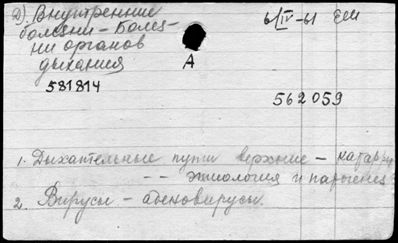 Д) Внутренние
болезни - Болез-
ни органов
дыхания
6/IV-61 ЕМ
А
581814
562059
1. Дыхательные пути верхние - катарры
-- этиология и патогенез
2. Вирусы - аденовирусы.